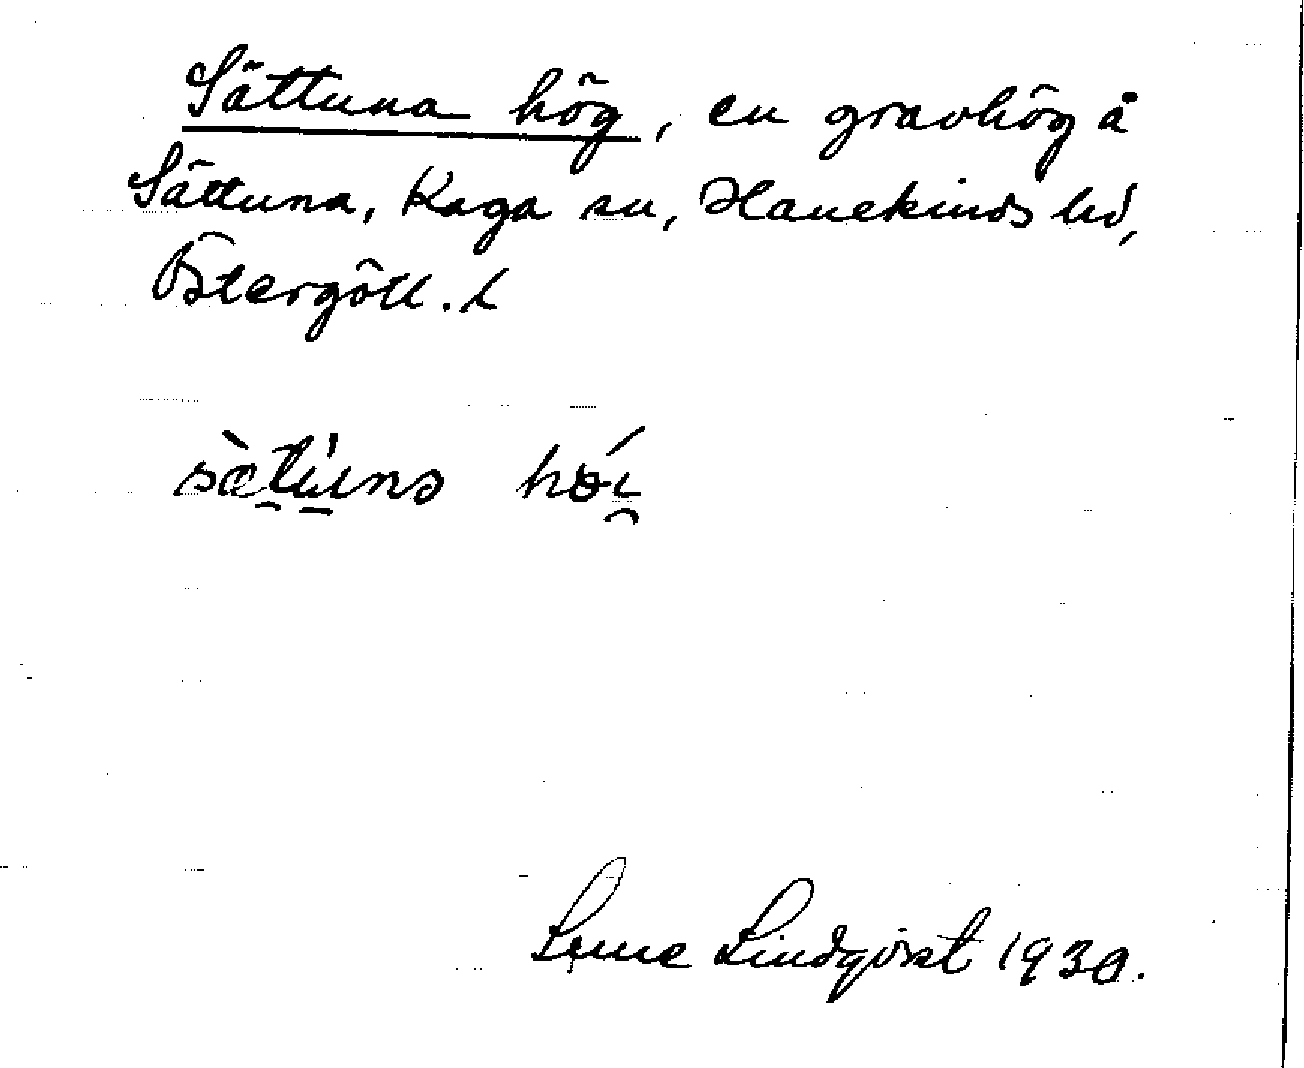 Sättuna hög, en gravhög å
Sättuna, Kaga sn, Hanekinds hd,
Östergötl. l
Sune Lindqvist 1930.